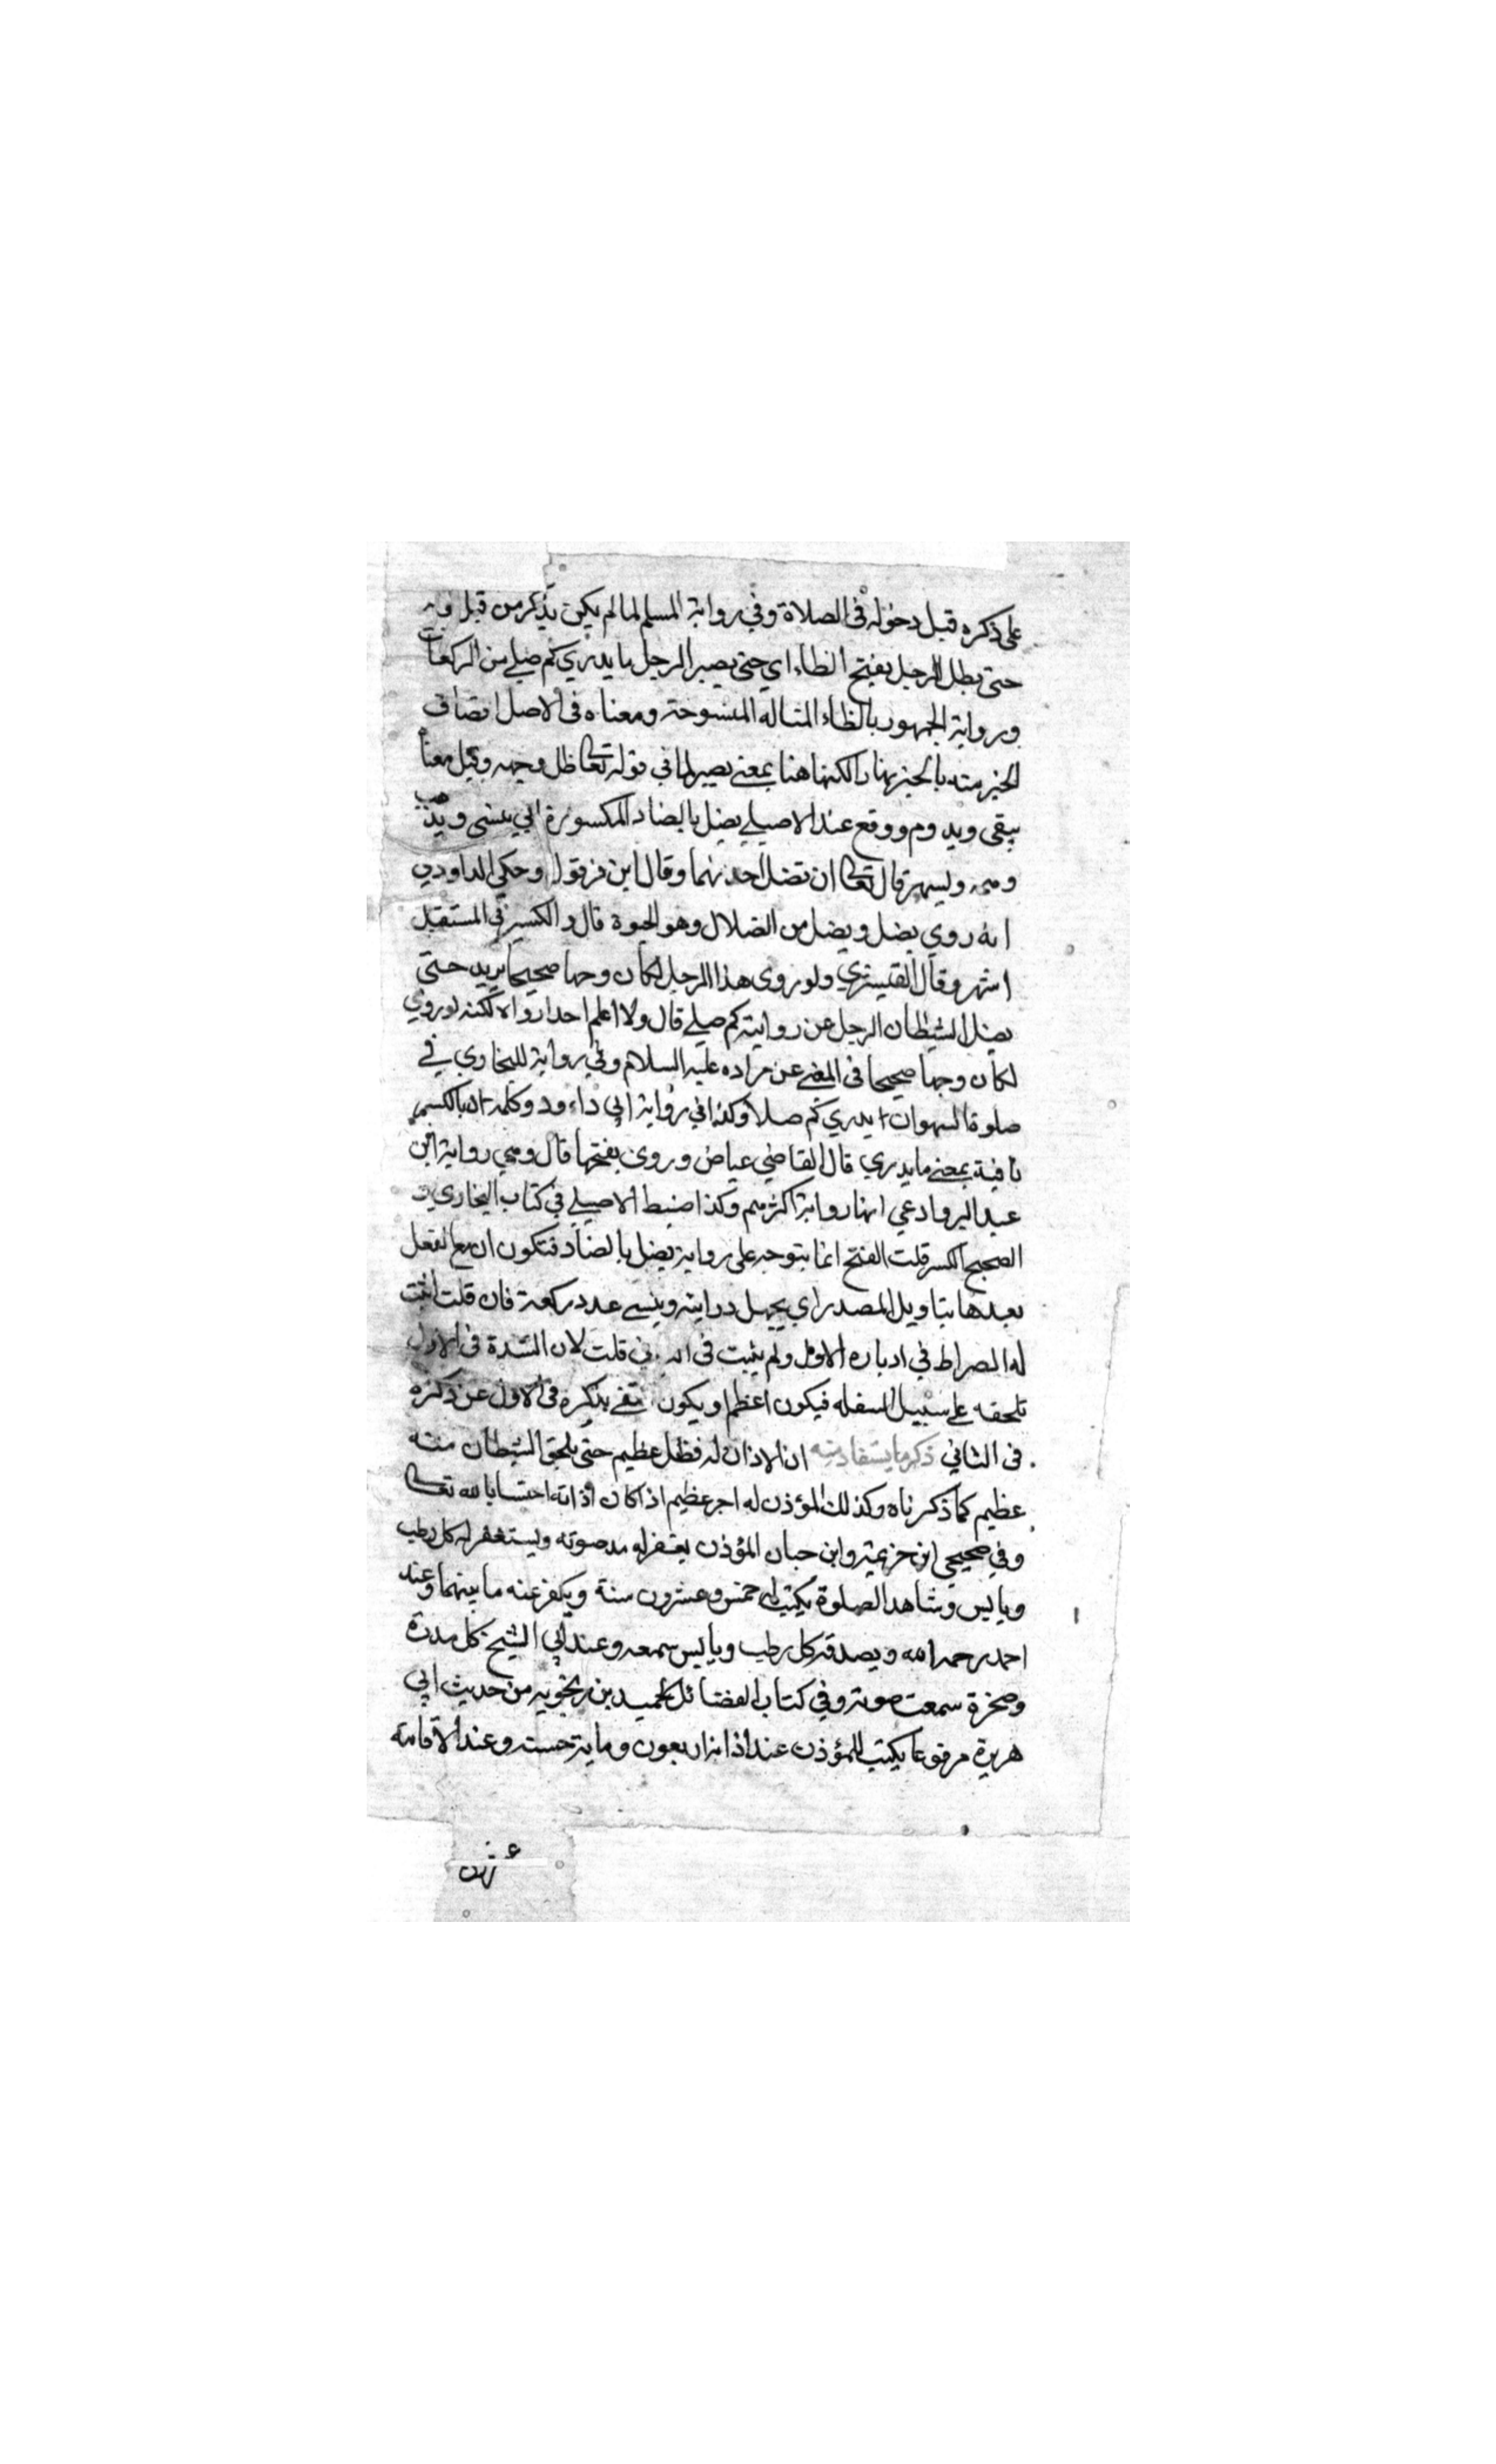 على ذكره قبل دخوله فى الصلاة وفي رواية المسلم لما لم يكن يذكر من قبل
حتى يظل الرجل بفتح الظاء اي حتى يصير الرجل ما يدري كم صلي من الركعات
ورواية الجمهور بالظاء المشالة المفتوحة ومعناه فى الاصل اتصاف
الخبر منه بالخبر نهارا لكنها هنا بمعنى يصير كما في قوله تعالى ظل وجهه وقيل معناه
يبقى ويدوم ووقع عند الاصيلي يضل بالضاد المكسورة اي ينسى ويذهب
وهمه ويسهو قال تعالى ان تضل احديهما وقال ابن قرقول وحكي الداودي
انه روي يضل ويضل من الضلال وهو الحيرة قال والكسر في المستقبل
اشهر وقال القشيري ولو روى هذا الرجل لكان وجها صحيحا يريد حتى
يضل الشيطان الرجل عن روايته كم صلي قال ولا اعلم احدا رواه لكنه لو روي
لكان وجها صحيحا فى المعنى عن مراده عليه السلام وفي رواية للبخاري في
صلوة السهو ان يدري كم صلا وكذا في رواية ابي داءود وكلمة ان بالكسر
نافية بمعنى ما يدري قال القاضي عياض وروى بفتحها قال وهي رواية ابن
عبد البر وادعي انها رواية اكثرهم وكذا ضبط الاصيلي في كتاب البخاري و
الصحيح الكسر قلت الفتح انما يتوجه على رواية يضل بالضاد فتكون ان مع الفعل
بعدها بتاويل المصدر اي يجهل درايته وينسى عدد ركعته فان قلت اثبت
له الضراط في ادباره الاول ولم يثبت فى قلت لان الشدة فى الاول
تلحقه على سبيل الغفله فيكون اعظم او يكون بذكره فى الاول عن ذكره
فى الثاني ذكر ما يستفاد منه ان الاذان له فظل عظيم حتى يلحق الشيطان منه
عظيم كما ذكرناه وكذلك المؤذن له اجر عظيم اذا كان اذانه احتسابا لله تعالى
وفي صحيحي ابن خزيمة وابن حبان المؤذن يغفر له مد صوته ويستغفر له كل رطب
ويابس وشاهد الصلوة يكتب له خمس وعشرون سنة ويكفر عنه ما بينهما وعند
احمد رحمه الله ويصدقه كل رطب ويابس سمعه وعند ابي الشيخ كل مدرة
وصخرة سمعت صوته وفي كتاب الفضائل لحميد بن زنجويه من حديث ابي
هريرة مرفوعا يكتب للمؤذن عند اذانه اربعون وماية حسنه وعند الاقامة
عشرون